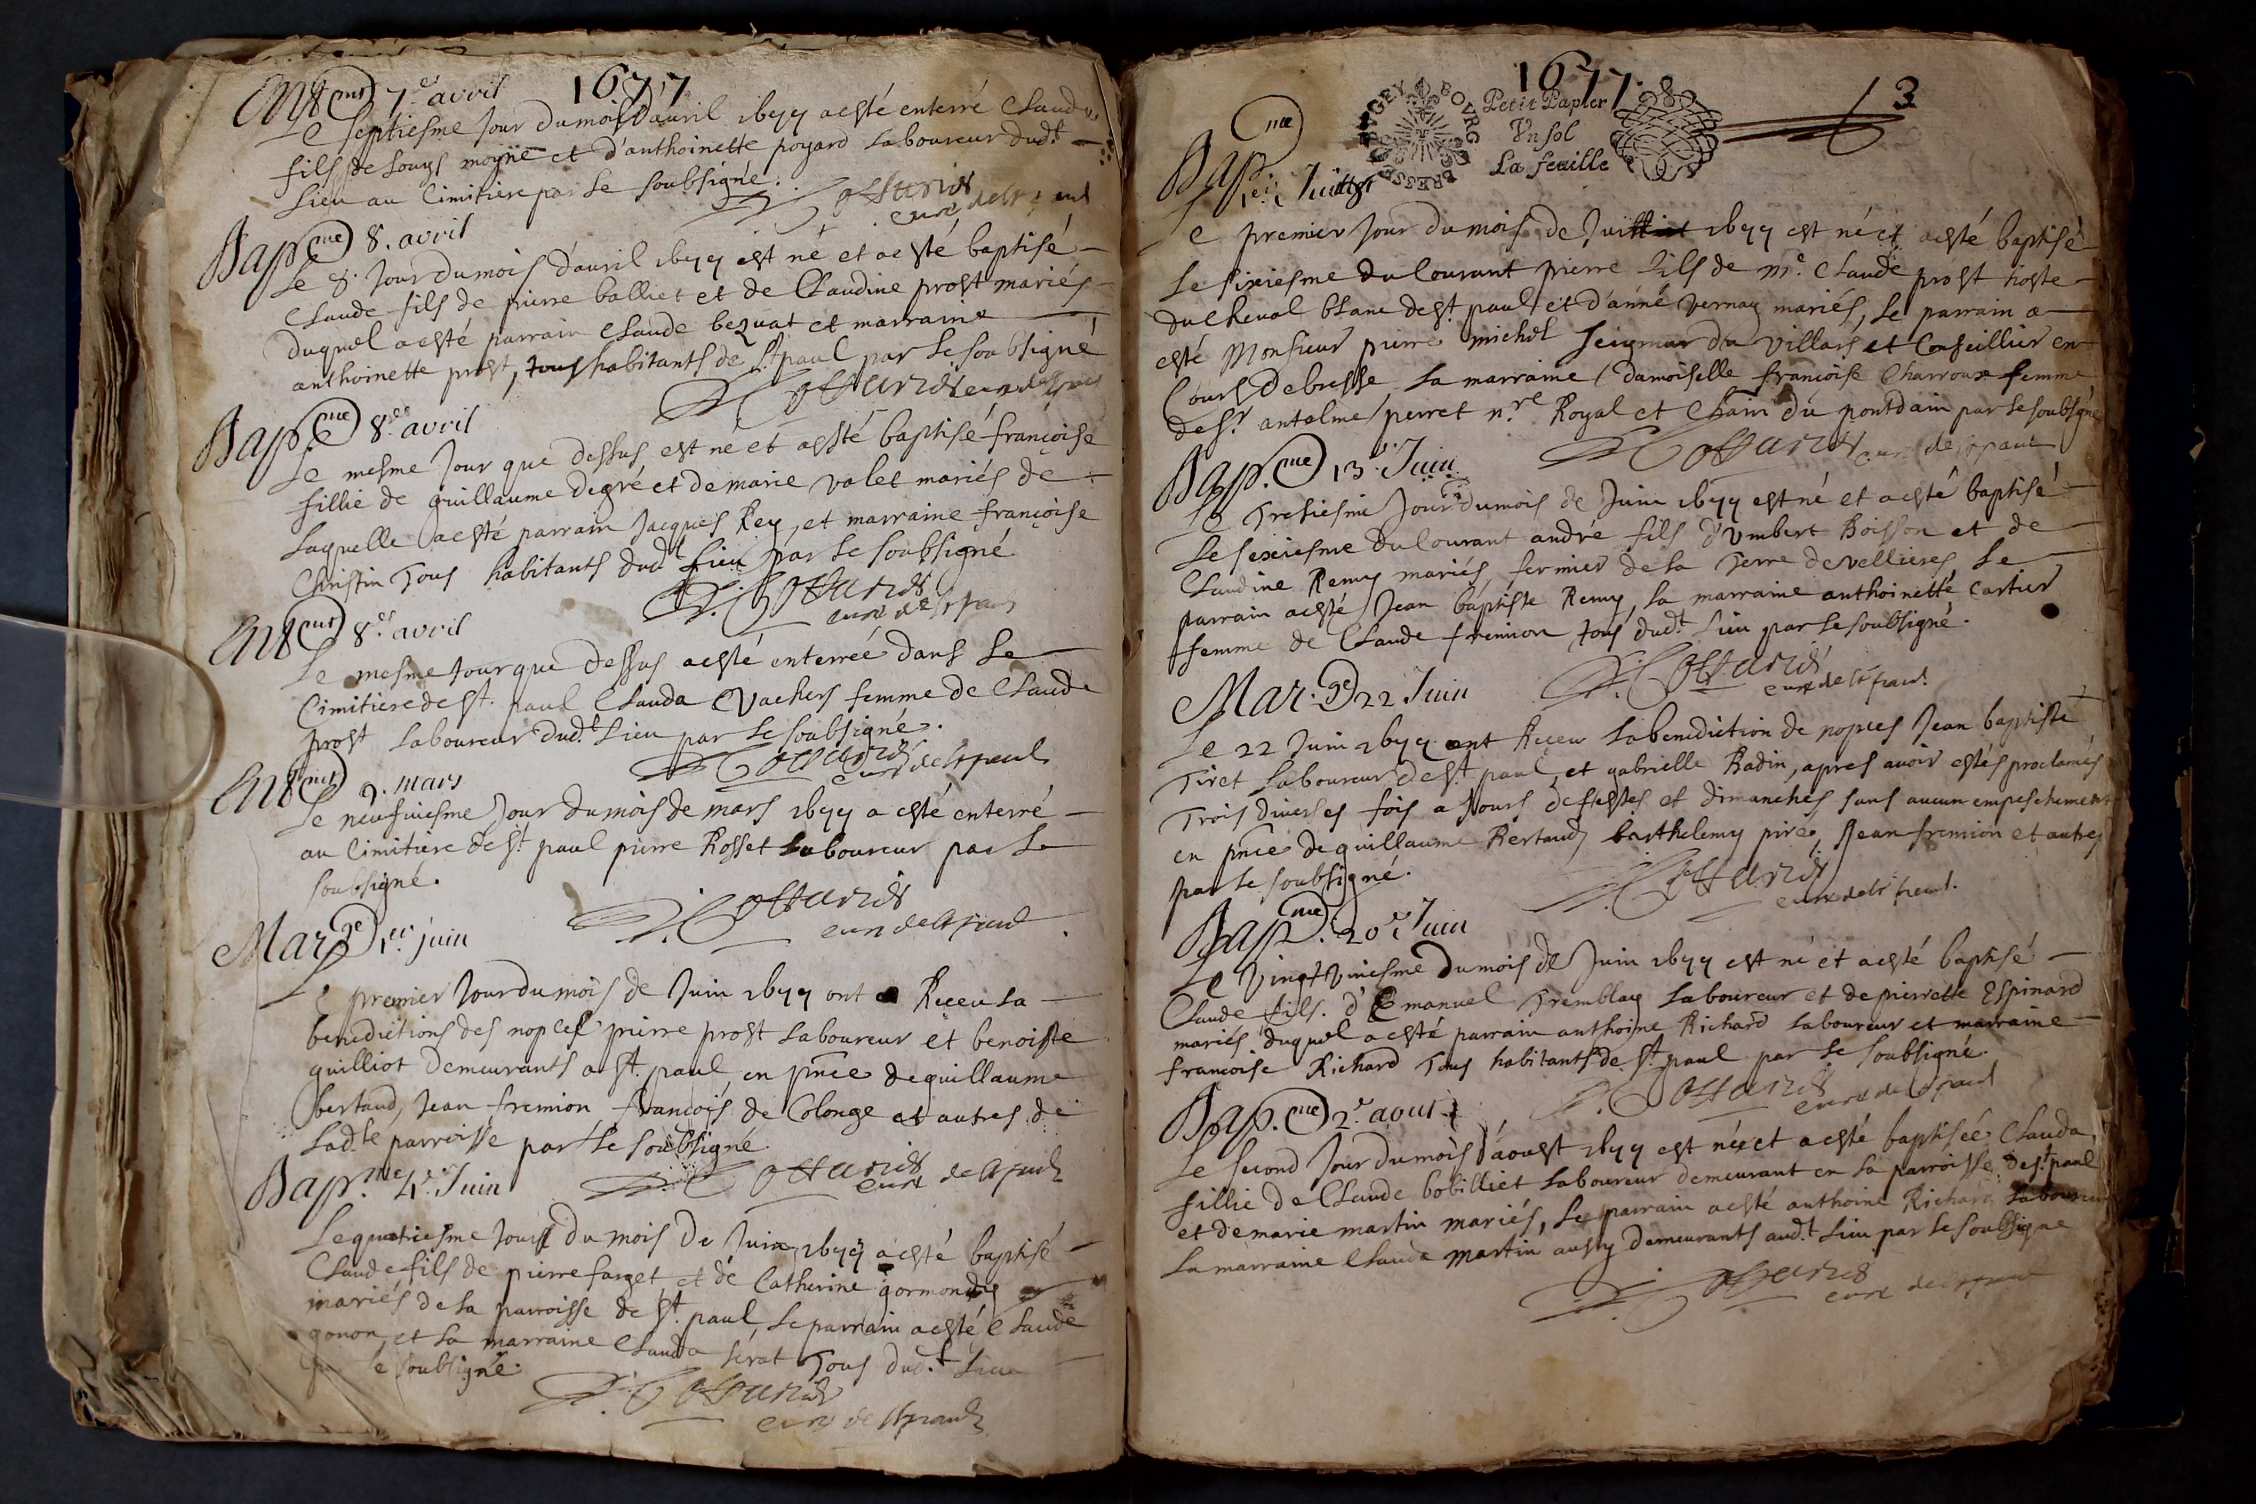 1677
Ent.ent 7.e avril
Le septiesme Jour du mois d'auril 1677 a esté enterré Claude
fils de Louys moyne et d'anthoinette poyard Laboureur dud.t
Lieu au Cimitiere par le soubsigné.
Cottarist
curé de
Bap.me 8. avril
Le 8. Jour du mois d'auril 1677 est né et a esté baptisé
Claude fils de pierre balliet et de Claudine prost mariés
duquel a esté parrain Claude bezuat et marraine
anthoinette prost, tous habitants de St. paul par le soubsigné
Cottarist curé de St paul
Bap.me 8.e avril
Le mesme Jour que dessus est né et a esté baptisé françoise
fillie de guillaume degré et de marie valet mariés de
Laquelle a esté parrain Jacques Rey, et marraine françoise
Christin Tous habitants dud.t Lieu par le soubsigné
Cottarist
curé de St paul
Ent.ent 8.e avril
Le mesme Jour que dessus a esté enterrée dans Le
Cimitiere de St. paul Clauda Vachers femme de Claude
prost Laboureur dud.t Lieu par le soubsigné.
Cottarist
curé de St paul
Ent.ent 9. mars
Le neufviesme Jour du mois de mars 1677 a esté enterré
au Cimitiere de St paul pierre Rosset Laboureur par Le
soubsigné.
Cottarist
curé de St paul
Mar.ge 1.er juin
Le premier Jour du mois de Juin 1677 ont Receu La
benedictions des nopces pierre prost Laboureur et benoiste
guilliot demeurants a St. paul en pnce de guillaume
bertaud, Jean fremion françois de Colonge et autres de
Lad.te parroisse par Le soubsigné
Cottarist
curé de St paul
Bap.me 4.e Juin
Le quatriesme Jour du mois de Juin 1677 a esté baptisé
Claude fils de pierre farget et de Catherine gormond
mariés de la parroisse de St. paul, Le parrain a esté Claude
gonon, et La marraine Clauda serat Tous dud.t Lieu
le soubsigné.
Cottarist
curé de St paul
1677
3
BVGEY BOVRG BRESSE
Petit Papier
Vn sol
La feuille
Bap.me
1.er Juillet
Le premier Jour du mois de Juillet 1677 est né et a esté baptisé
Le sixiesme du Courant pierre fils de m.e Claude prost hoste
du cheval blanc de St. paul et d'anne vernay mariés, Le parrain a
esté Monsieur pierre michel seigneur du Villars et Conseillier en
Cours de bresse La marraine damoiselle françoise Charroux femme
de Sr. antelme perret n.re Royal et Cham du pontdain par le soubsigné
Cottarist
curé de St paul
Bap.me 13.e Juin
Le Tresiesme Jour du mois de Juin 1677 est né et a esté baptisé
Le sexiesme du Courant andré fils d'Vmbert Boisson et de
Claudine Remy mariés, fermier de la Terre de vellieres, Le
parrain a esté Jean baptiste Remy, La marraine anthoinette Cartier
femme de Claude fremion tous dud.t Lieu par Le soubsigné.
Cottarist
curé de St paul.
Mar.ge 22 Juin
Le 22 Juin 1677 ont Receu La benediction de nopces Jean baptiste
Tiret Laboureur de St. paul, et gabrielle Radin, apres auoir estés proclamés
Trois diverses fois a Jours de festes et dimanches sans aucun empeschement
en pnce de guillaume Bertaud, barthelemy pires, Jean fremion et autres
par Le soubsigné.
Cottarist
curé de St paul.
Bap.me 20.e Juin
Le Vingtviesme du mois de Juin 1677 est né et a esté baptisé
Claude fils d'Emanuel Tremblay Laboureur et de pierrette Espinard
mariés duquel a esté parrain anthoine Richard Laboureur et marraine
francoise Richard Tous habitants de St. paul par Le soubsigné.
Cottarist
curé de St paul
Bap.me 2.e aout
Le second Jour du mois d'aoust 1677 est née et a esté baptisée Clauda
fillie de Claude bobilliet Laboureur demeurant en La parroisse de St. paul
et de marie martin mariés, Le parrain a esté anthoine Richard Laboureur
La marraine Clauda martin aussy demeurants aud.t Lieu par Le soubsigne
Cottarist
curé de St paul